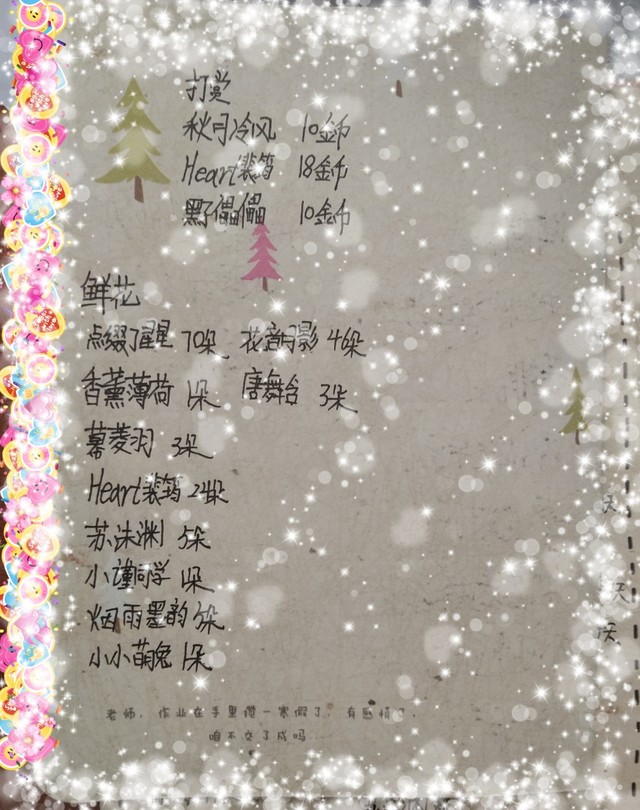 打赏
秋月冷风 10金币
Heart裴筠 18金币
點了儡儡 10金币
鲜花
点缀了星星 70朵 花音月影 46朵
香薰薄荷 1朵 唐舞台 3朵
幕菱羽 3朵
Heart裴筠 24朵
苏沫渊 5朵
小谨同学 1朵
烟雨墨韵 5朵
小小萌兔 1朵
老师，作业在手里攒一寒假了，有感情了，
咱不交了成吗
天
天